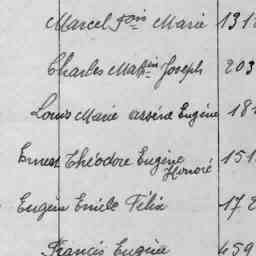 Marcel fois Marie 131
Charles Matin Joseph 203
Louis Marie arsène Eugène 181
Ernest Théodore Eugène 151
Honoré
Eugèn Emile Félix 172
Francis Eugène 459